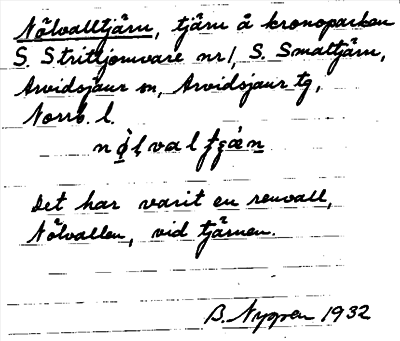 Nölvalltjärn, tjärn å kronoparken
S. Stritjomvare nr 1, S. Småttjärn,
Arvidsjaur sn, Arvidsjaur tg,
Norrb. l.
Det har varit en renvall,
Nölvallen, vid tjärnen.
B. Nygren 1932